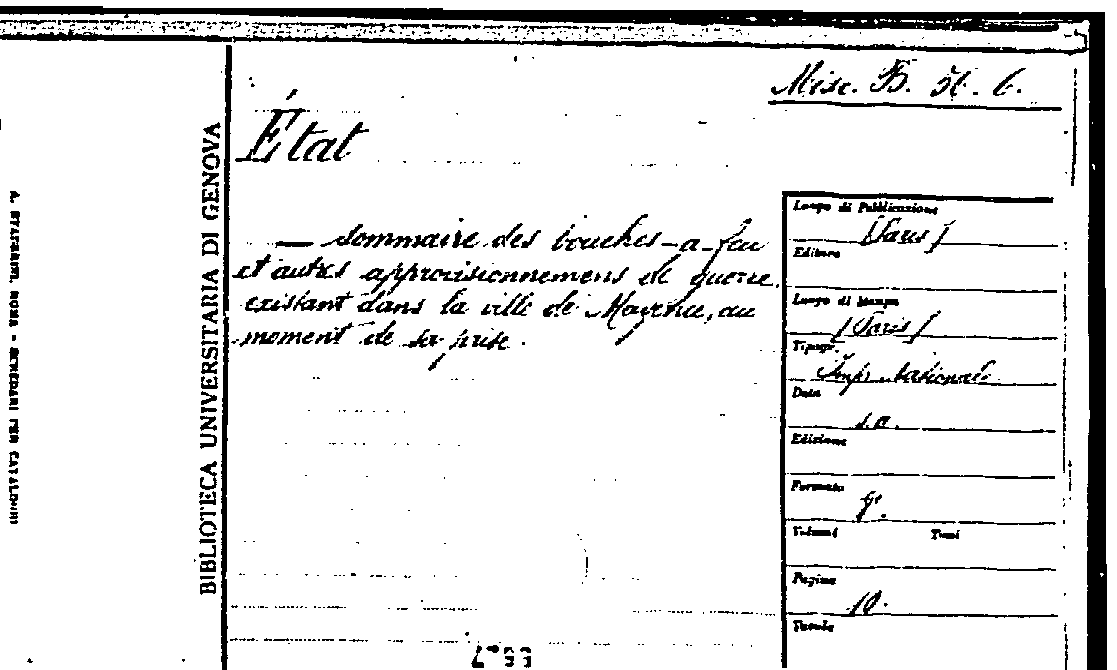 Misc. B. 56. 6.
État
— sommaire des bouches-a-feu
et autres approvisionnemens de guerre
existant dans la ville de Mayence, au
moment de sa prise.
BIBLIOTECA UNIVERSITARIA DI GENOVA
A. STADERINI, ROMA - SCHEDARI PER CATALOGHI
Luogo di Pubblicazione
[Paris]
Editore
Luogo di Stampa
[Paris]
Tipogr.
Imp. Nationale
Data
s.a.
Edizione
Formato
Volumi Tomi
Pagine
10.
Tavole